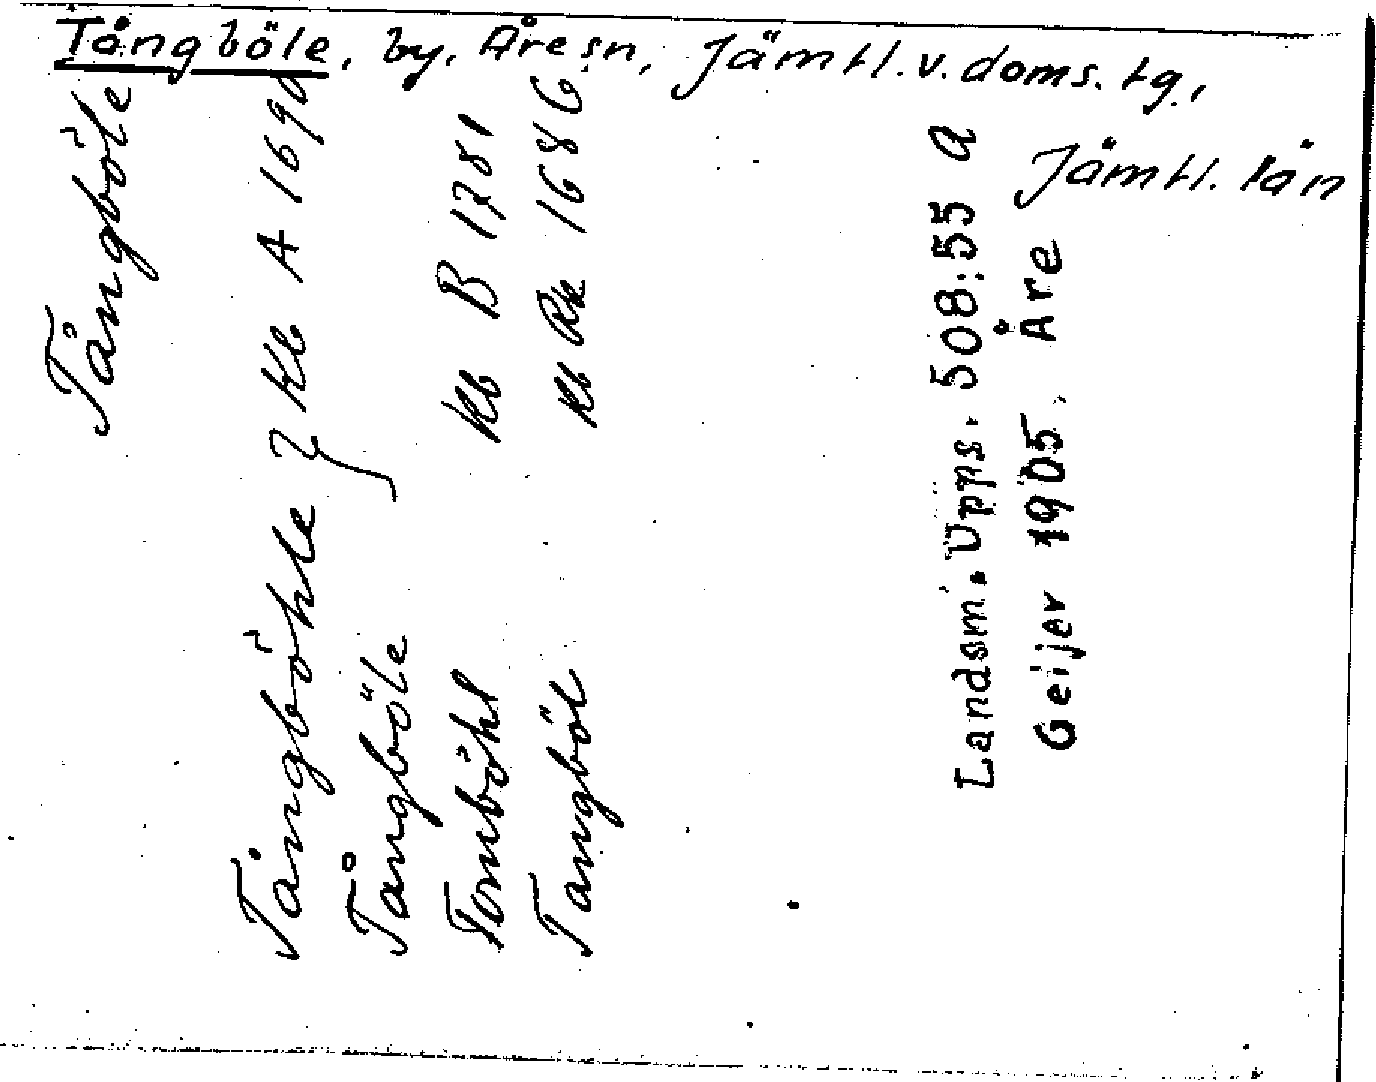 Tångböle, by, Åre sn, Jämtl. v. doms. tg,
Jämtl. län
Tångböle
Tångböhle } Kb A 1690
Tångböle
Tonböhl Kb B 1781
Tangböl Kb Rk 1686
Landsm. Upps. 508:55 a
Geijer 1905. Åre